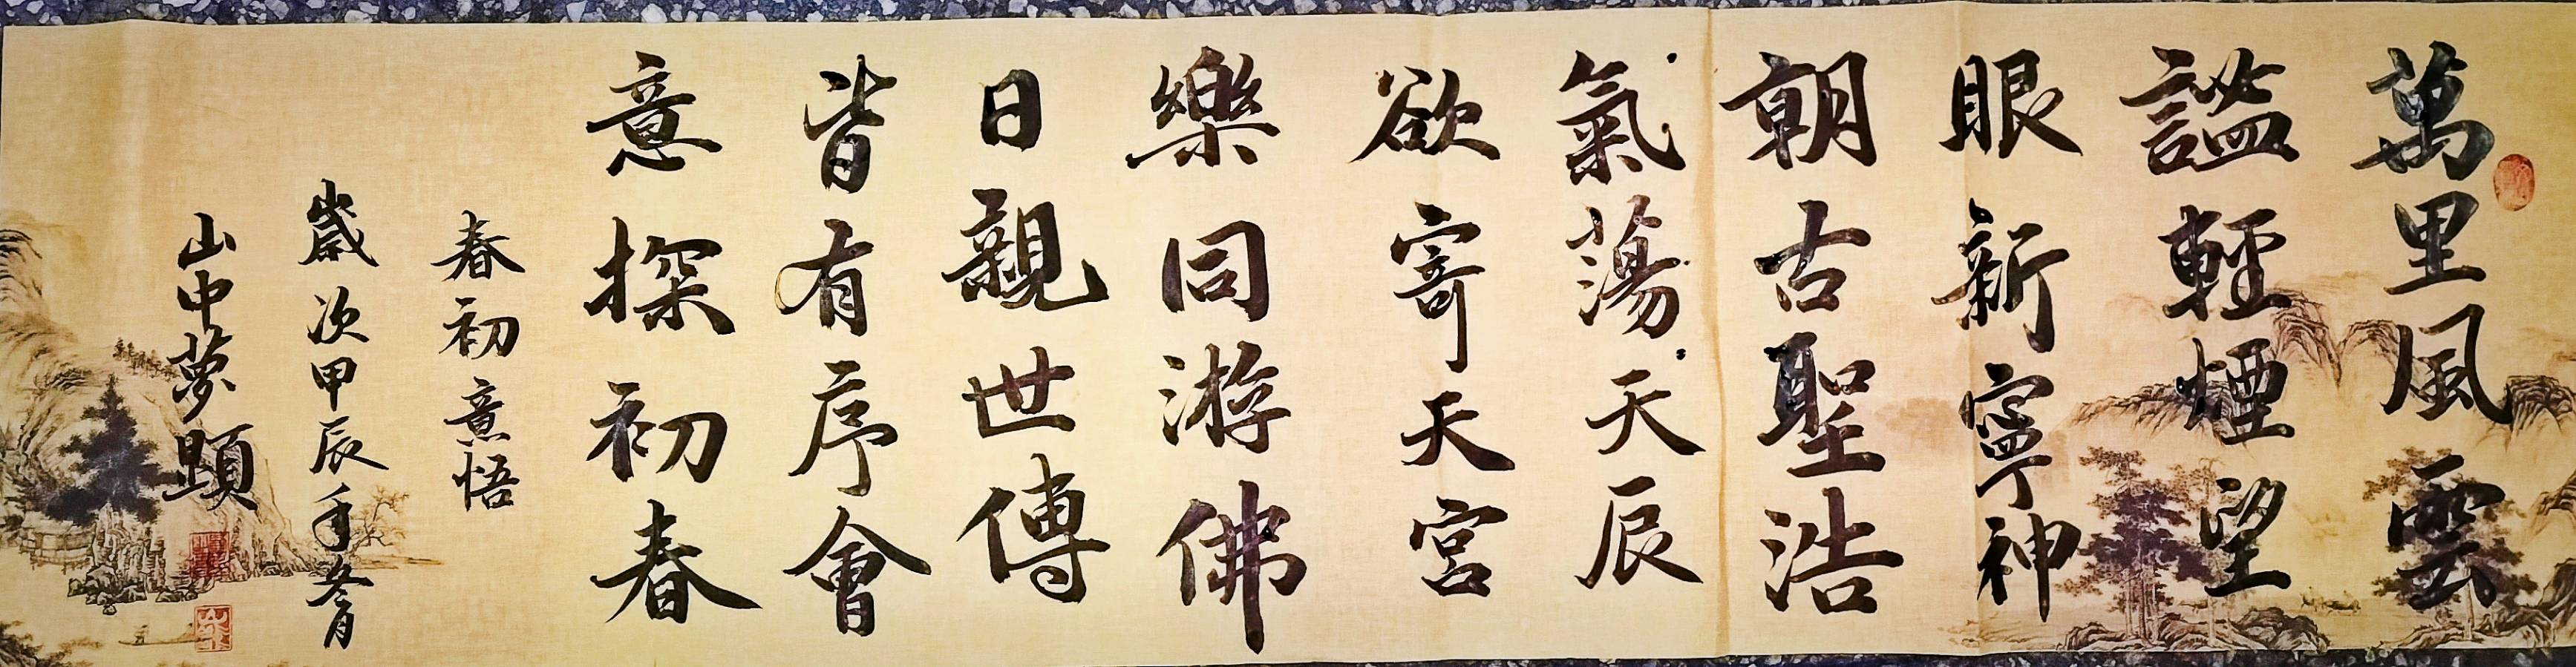 萬里風雲
謐輕煙望
眼新寧神
朝古聖浩
氣蕩天辰
欲寄天宮
樂同游佛
日親世傳
皆有序會
意探初春
春初意悟
歲次甲辰年冬月
山中夢顕